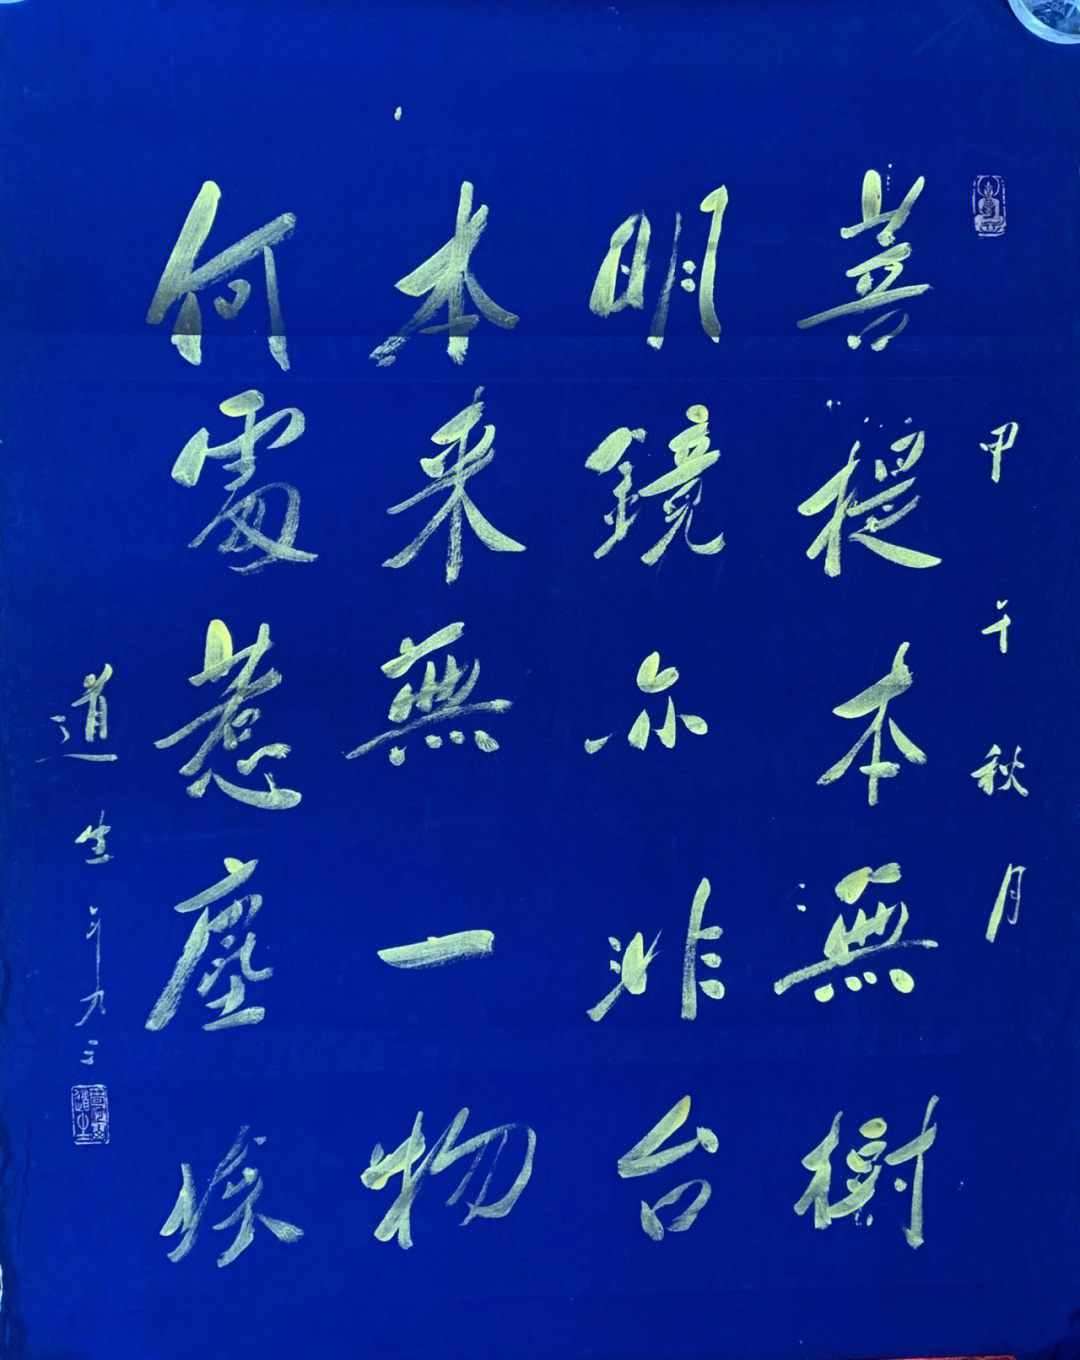 甲午秋月
菩提本無樹
明鏡亦非台
本来無一物
何處惹塵埃
道生年九三